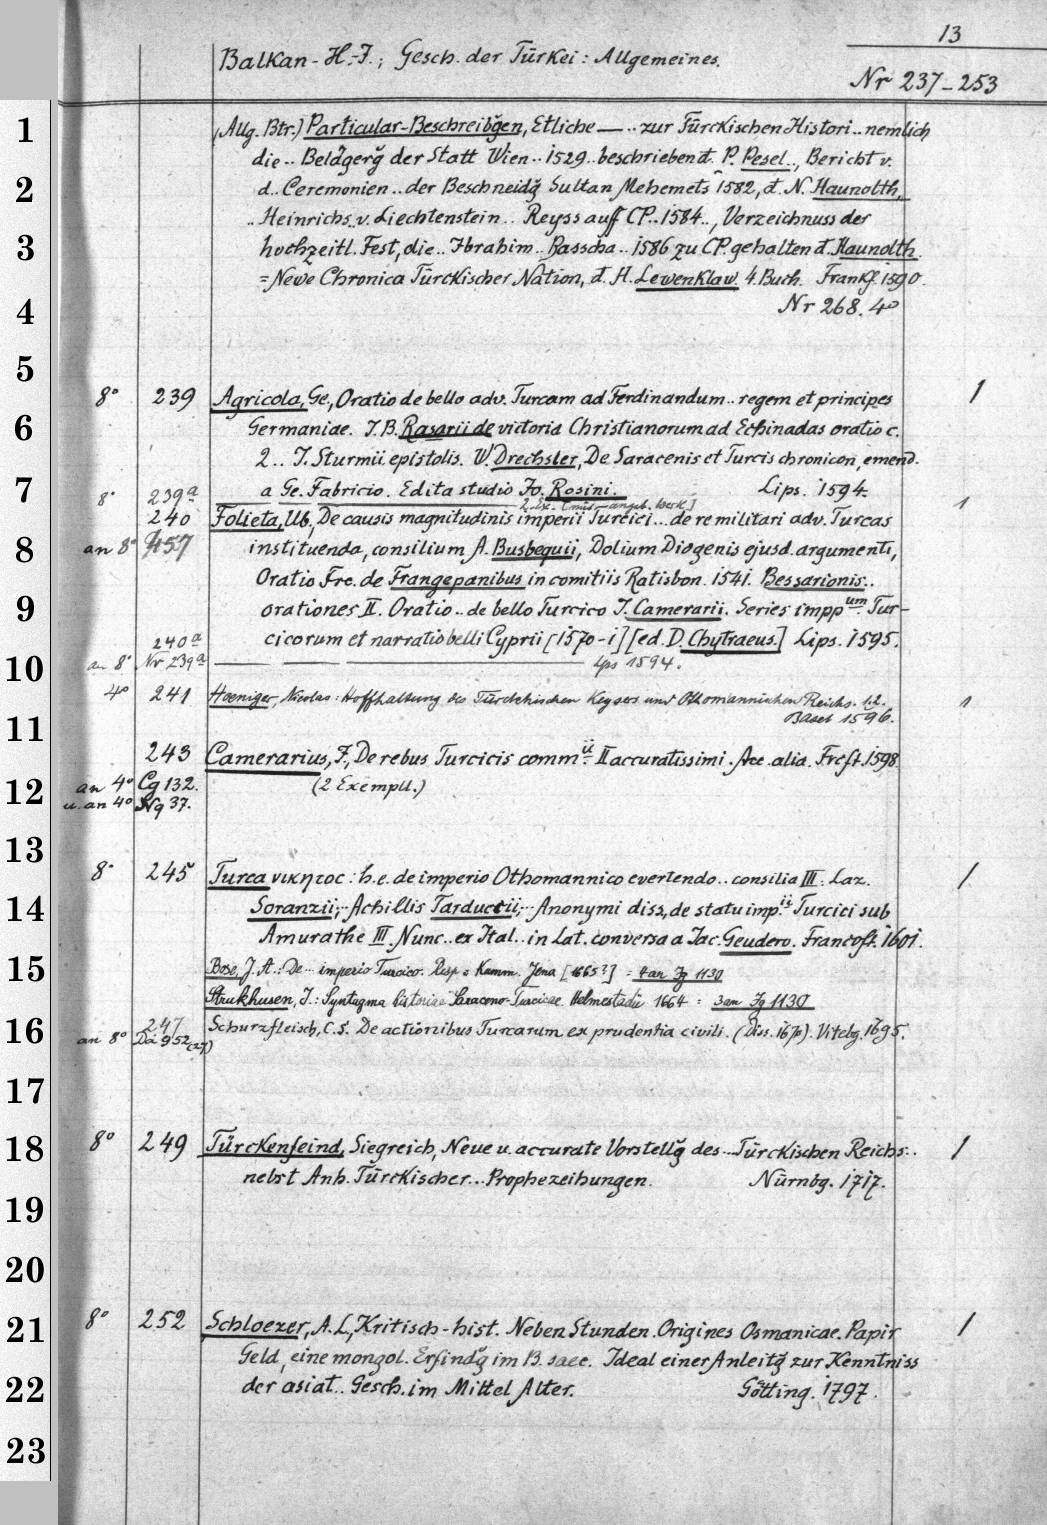 13
Balkan-H.-J.; Gesch. der Türkei: Allgemeines.
Nr 237-253
(Allg. Btr.) Particular-Beschreibg̃en, Etliche — .. zur Türckischen Histori .. nemlich
die .. Belägerg̃ der Statt Wien .. 1529 .. beschrieben d. P. Pesel .., Bericht v.
d.. Ceremonien .. der Beschneidg̃ Sultan Mehemets 1582, d. N. Haunolth,
.. Heinrichs v. Liechtenstein .. Reyss auff CP.. 1584 .., Verzeichnuss der
hochzeitl. Fest, die .. Ibrahim .. Basscha .. 1586 zu CP. gehalten d. Haunolth.
= Neve Chronica Türckischer Nation, d. H. Lewenklaw. 4. Buch. Frankf. 1590.
Nr 268. 4°
8° 239 Agricola, Ge., Oratio de bello adv. Turcam ad Ferdinandum .. regem et principes 1
Germaniae. J. B. Rasarii de victoria Christianorum ad Echinadas oratio c.
2 .. J. Sturmii epistolis. W. Drechsler, De Saracenis et Turcis chronicon, emend.
a Ge. Fabricio. Edita studio Jo. Rosini. Lips. 1594.
8° 239a 2. Ex. [angeb. Werk] 1
240 Folieta, Ub., De causis magnitudinis imperii Turcici ... de re militari adv. Turcas
an 8° 457 instituenda, consilium A. Busbequii, Dolium Diogenis ejusd. argumenti,
Oratio Frc. de Frangepanibus in comitiis Ratisbon. 1541. Bessarionis ..
orationes II. Oratio .. de bello Turcico J. Camerarii. Series impp.um Tur-
240a cicorum et narratio belli Cyprii [1570-1] [ed. D. Chytraeus.] Lips. 1595.
an 8° Nr 239a — — — Lps 1594.
4° 241 Hoeniger, Nicolas: Hoffhaltung des Türckhischen Keysers und Othomannischen Reichs. 1.2. 1
Basel 1596.
243 Camerarius, J., De rebus Turcicis comm.ii II accuratissimi. Acc. alia. Frcft. 1598.
an 4° Cg 132. (2 Exempll.)
u. an 4° Ng 37.
8° 245 Turca νικητος: h. e. de imperio Othomannico evertendo .. consilia III: Laz. 1
Soranzii, .. Achillis Tarduccii, .. Anonymi diss, de statu imp.ii Turcici sub
Amurathe III. Nunc .. ex Ital .. in Lat. conversa a Jac. Geudero. Francoft. 1601.
Bose, J. A.: De .. imperio Turcico. Resp. Kamm. Jena [1665?] = 4 an Jg 1130
Strukhusen, J.: Syntagma historiae Saraceno-Turcicae. Helmestadii 1664 = 3 an Jg 1130
247 Schurzfleisch, C. S. De actionibus Turcarum ex prudentia civili. (Diss. 1670). Vitebg. 1695.
an 8° Da 952 (27)
8° 249 Türckenfeind, Siegreich, Neue u. accurate Vorstellg̃ des .. Türckischen Reichs .. 1
nebst Anh. Türckischer ... Prophezeihungen. Nürnbg. 1717.
8° 252 Schloezer, A. L., Kritisch-hist. Neben Stunden. Origines Osmanicae. Papir 1
Geld, eine mongol. Erfindg̃ im B. saec. Ideal einer Anleitg̃ zur Kenntniss
der asiat. Gesch. im Mittel Alter. Götting. 1797.
1
2
3
4
5
6
7
8
9
10
11
12
13
14
15
16
17
18
19
20
21
22
23